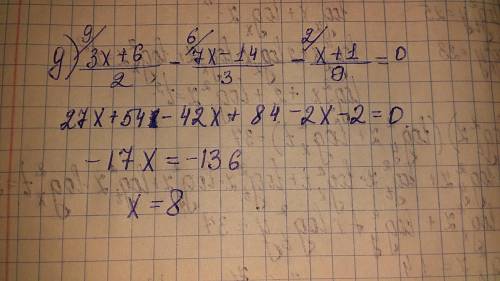 9/ 6/ 2/
g) (3x+6)/2 - (7x-14)/3 - (x+1)/9 = 0
27x+54-42x+84-2x-2=0
-17x=-136
x=8